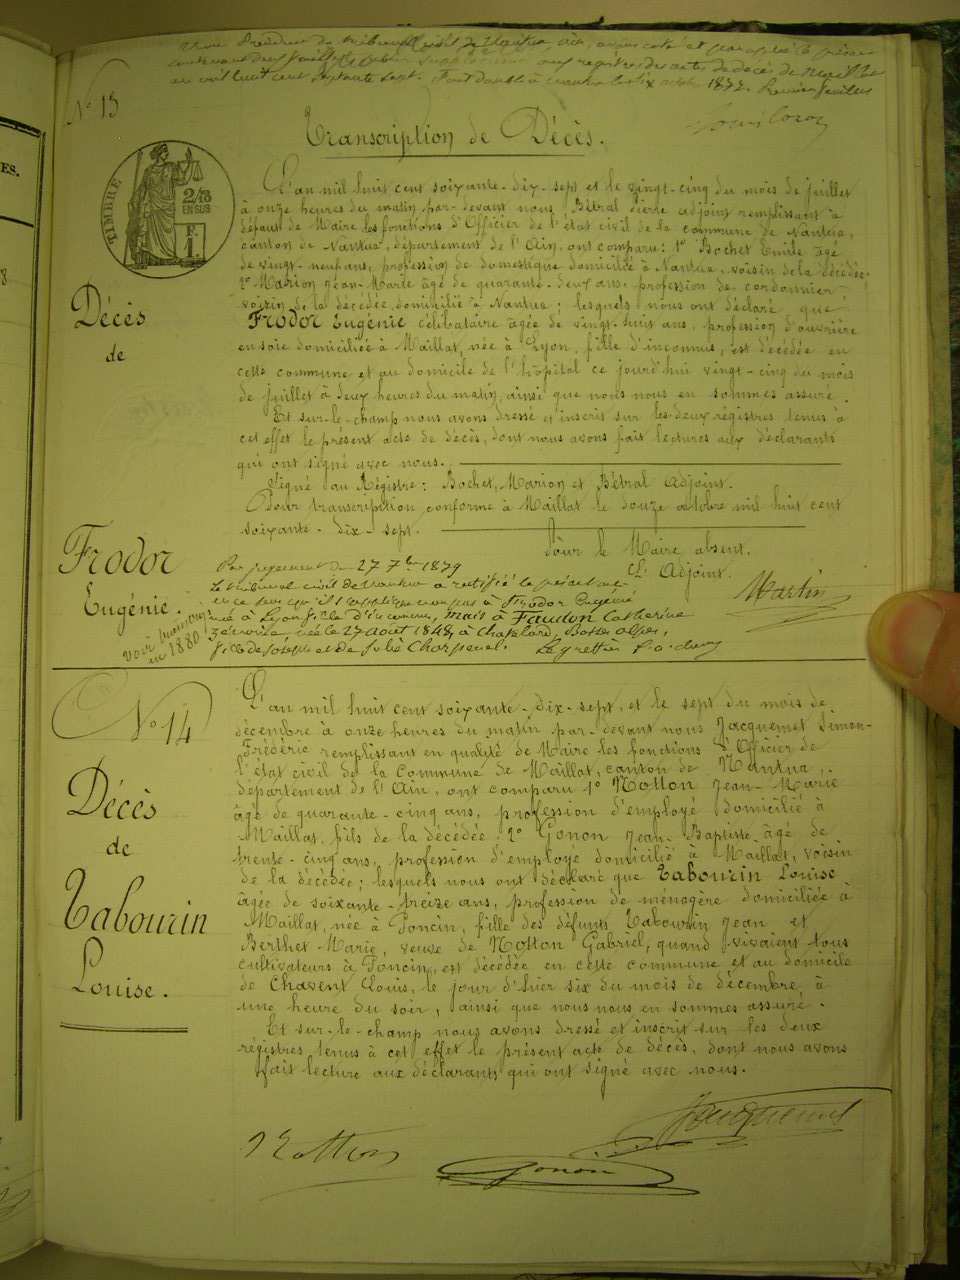 ES.
8
Nous Président du tribunal civil de Nantua, Ain, avons coté et paraphé le présent
contenant deux feuillets supplément aux registres des actes de décès de Maillat
mil huit cent soixante sept. Fait double à Nantua le six octobre 1877. Premier feuillet
N° 13
Transcription de Décès.
TIMBRE
2/10
EN SUS
F.
1
L'an mil huit cent soixante-dix-sept et le vingt-cinq du mois de juillet
à onze heures du matin par-devant nous Bétral Pierre adjoint remplissant à
défaut de Maire les fonctions d'Officier de l'état civil de la commune de Nantua,
canton de Nantua, département de l'Ain, ont comparu: 1° Bochet Emile âgé
de vingt-neuf ans, profession de domestique domicilié à Nantua, voisin de la décédée;
2° Marion Jean-Marie âgé de quarante-deux ans, profession de cordonnier
voisin de la décédée domicilié à Nantua; lesquels nous ont déclaré que
Frodor Eugénie célibataire âgée de vingt-huit ans, profession d'ouvrière
en soie domiciliée à Maillat, née à Lyon, fille d'inconnus, est décédée en
cette commune et au domicile de l'hôpital ce jourd'hui vingt-cinq du mois
de juillet à deux heures du matin, ainsi que nous nous en sommes assuré.
Et sur-le-champ nous avons dressé et inscrit sur les deux régistres tenus à
cet effet le présent acte de décès, dont nous avons fait lectures aux déclarants
qui ont signé avec nous.
Signé au Régistre: Bochet, Marion et Bétral Adjoint.
Pour transcription conforme à Maillat le douze octobre mil huit cent
soixante-dix-sept.
Pour le Maire absent.
L'Adjoint.
Martin
Décès
de
Frodor
Eugénie.
voir
en 1880
Par jugement du 27 7bre 1879
le tribunal civil de Nantua a rectifié le présent acte
en ce sens qu'il s'applique non pas à Frodor Eugénie
née à Lyon fille d'inconnus, mais à Faudon Catherine
née le 27 août 1848, à Chapelard, Basses alpes,
fille de Joseph et de Julie Charpenel. Le greffier
N° 14
Décès
de
Tabourin
Louise.
L'an mil huit cent soixante-dix-sept, et le sept du mois de
décembre à onze heures du matin par-devant nous Jacquemet Simon-
Frédéric remplissant en qualité de Maire les fonctions d'Officier de
l'état civil de la Commune de Maillat, canton de Nantua,
département de l'Ain, ont comparu 1° Notton Jean-Marie
âgé de quarante-cinq ans, profession d'employé domicilié à
Maillat, fils de la décédée; 2° Gonon Jean-Baptiste âgé de
trente-cinq ans, profession d'employé domicilié à Maillat, voisin
de la décédée; lesquels nous ont déclaré que Tabourin Louise
âgée de soixante-treize ans, profession de ménagère domiciliée à
Maillat, née à Poncin, fille des défunts Tabourin Jean et
Berthet Marie, veuve de Notton Gabriel, quand vivaient tous
cultivateurs à Poncin, est décédée en cette commune et au domicile
de Chavent Louis, le jour d'hier six du mois de décembre à
une heure du soir, ainsi que nous nous en sommes assuré.
Et sur-le-champ nous avons dressé et inscrit sur les deux
régistres tenus à cet effet le présent acte de décès, dont nous avons
fait lecture aux déclarants qui ont signé avec nous.
Jacquemet
Notton
Gonon